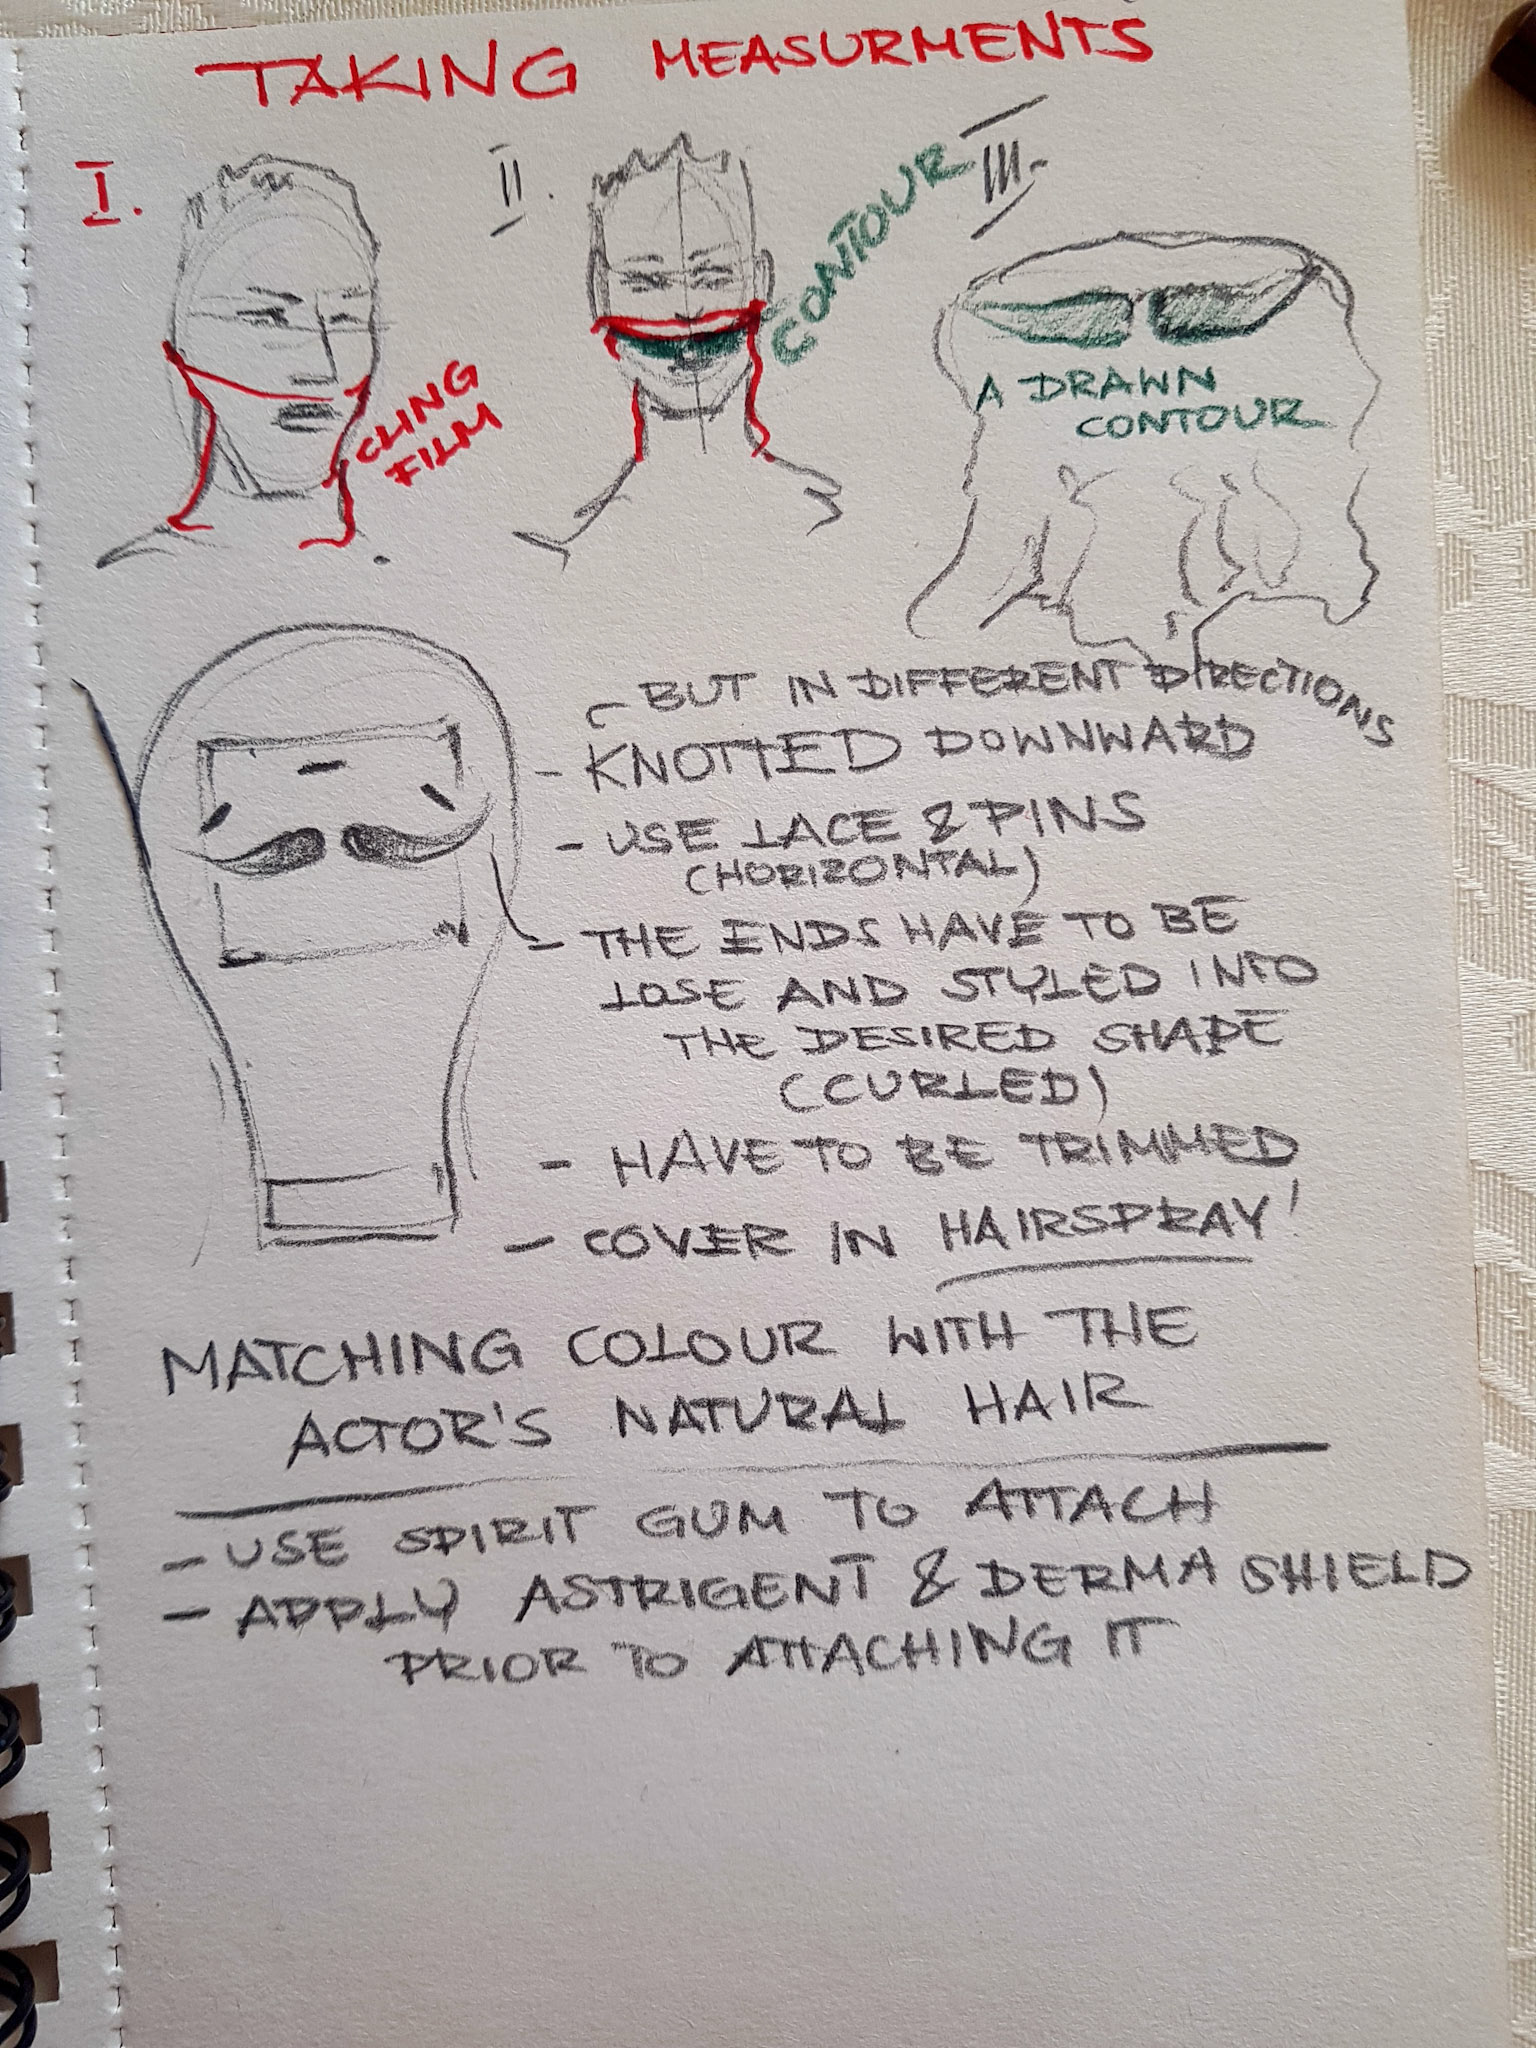 TAKING MEASURMENTS
I.
II.
III.
CLING
FILM
CONTOUR
A DRAWN
CONTOUR
BUT IN DIFFERENT DIRECTIONS
- KNOTTED DOWNWARD
- USE LACE & PINS
(HORIZONTAL)
- THE ENDS HAVE TO BE
LOSE AND STYLED INFO
THE DESIRED SHAPE
(CURLED)
- HAVE TO BE TRIMMED
- COVER IN HAIRSPRAY!
MATCHING COLOUR WITH THE
ACTOR'S NATURAL HAIR
- USE SPIRIT GUM TO ATTACH
- APPLY ASTRIGENT & DERMA SHIELD
PRIOR TO ATTACHING IT